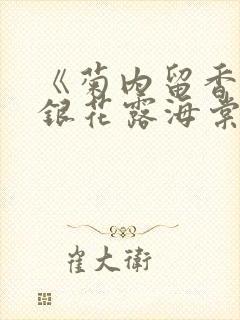 《菊内留香
銀花露海棠
崔大衛